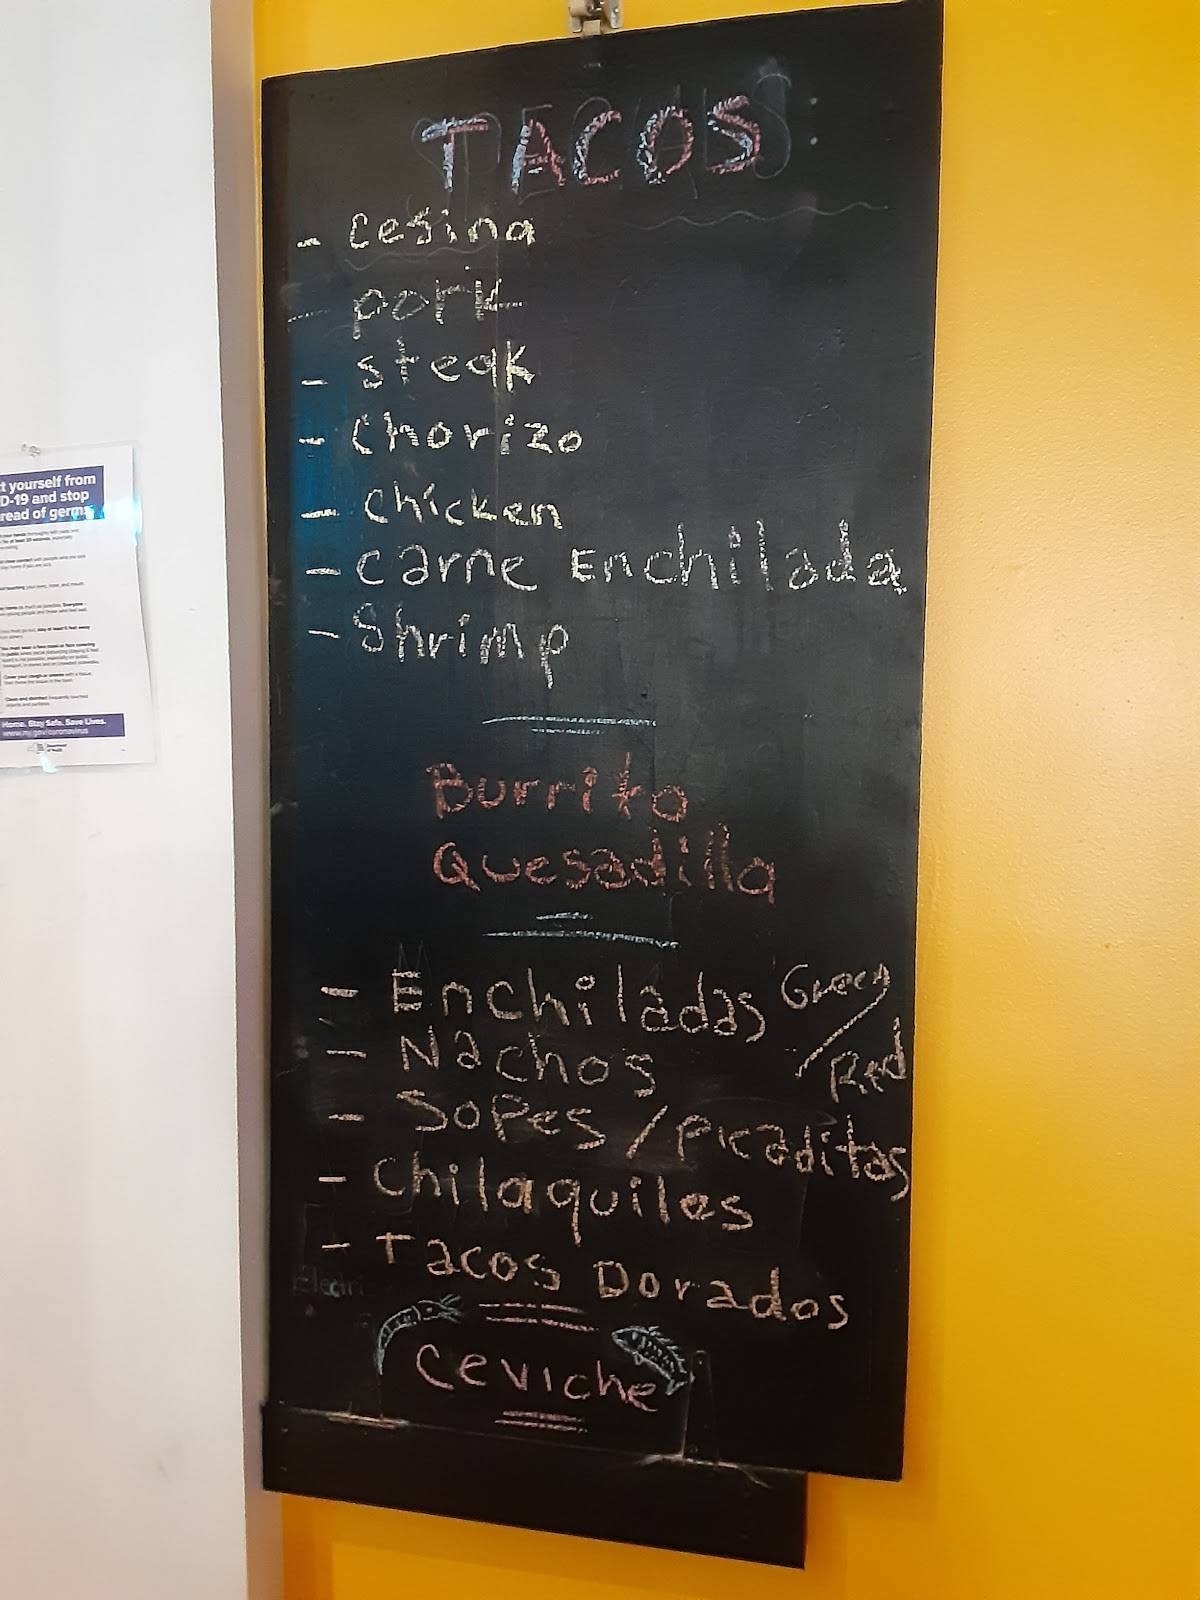 TACOS:
- Cesina
- pork
- steak
- Chorizo
- Chicken
- Carne Enchilada
- Shrimp
Burrito
Quesadilla
- Enchiladas Green/Red
- Nachos
- Sopes / picaditas
- Chilaquiles
- Tacos Dorados
Ceviche
t yourself from
D-19 and stop
read of germs
Home. Stay Safe. Save Lives.
www.ny.gov/coronavirus
Department
of Health